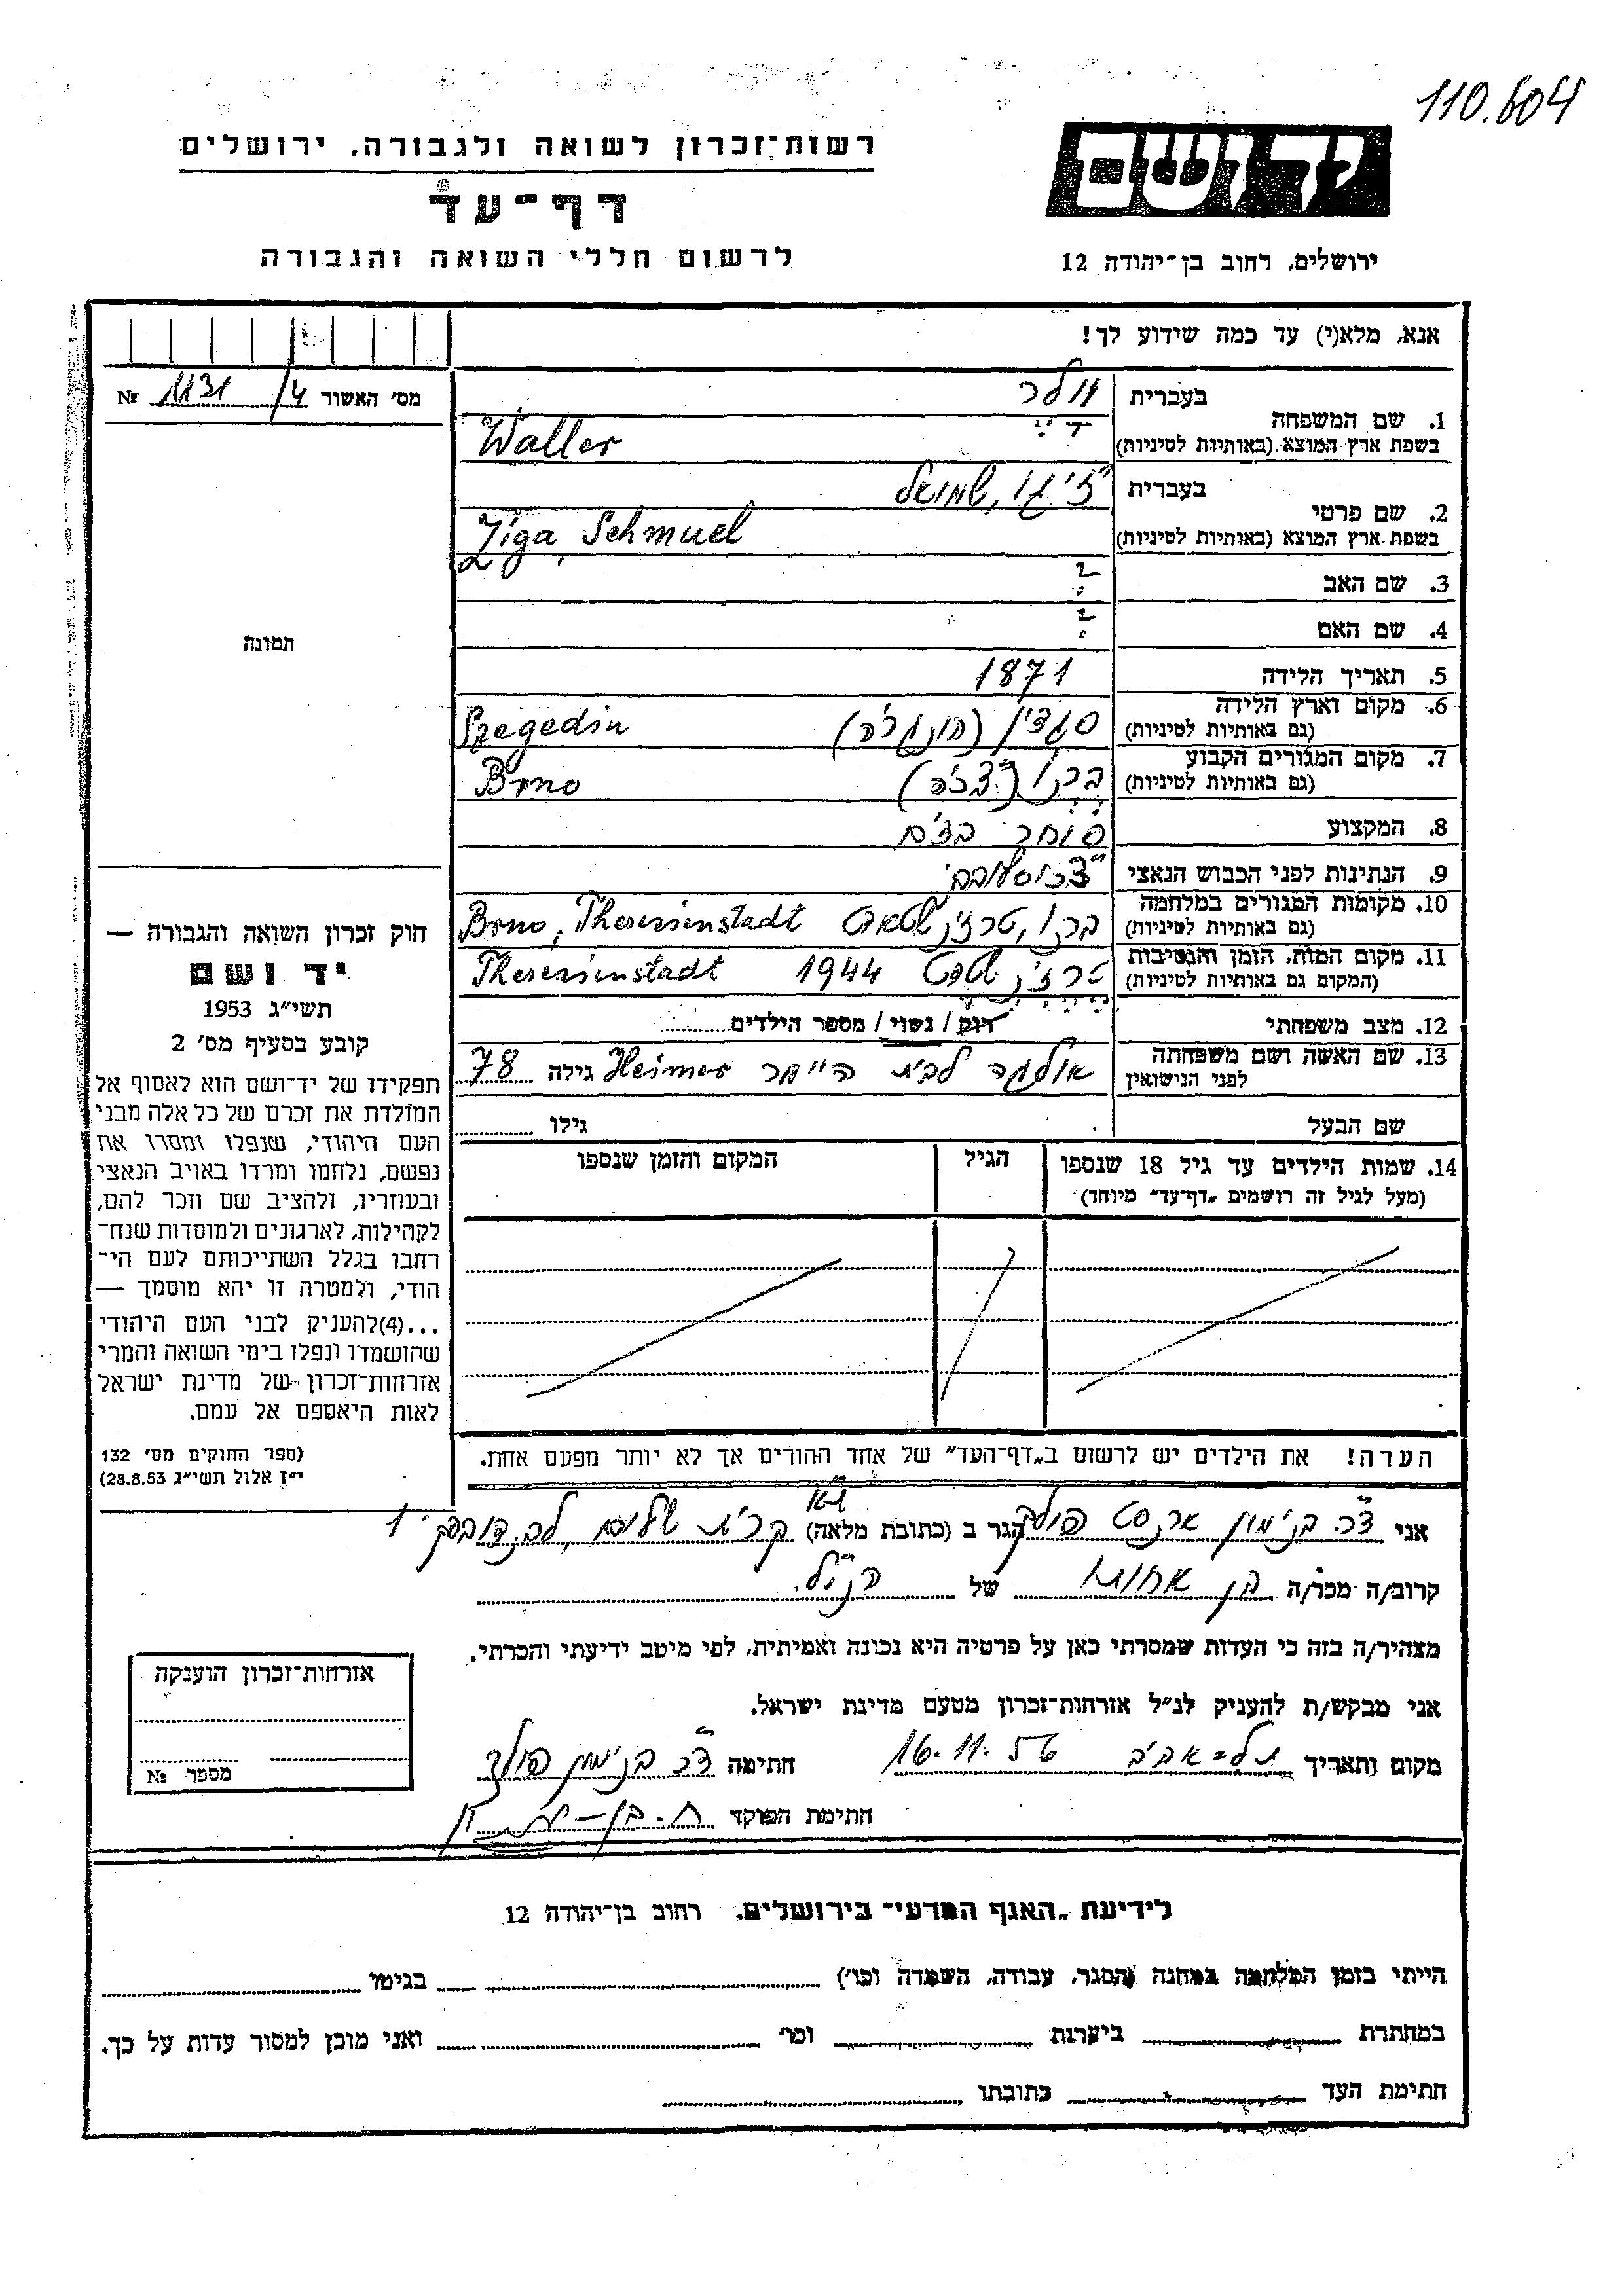 110.604
רשות־זכרון לשואה ולגבורה, ירושלים
דף־עד
לרשום חללי השואה והגבורה
יד ושם
ירושלים, רחוב בן־יהודה 12
אנא, מלא(י) עד כמה שידוע לך!
מס׳ האשור 1131/4 №
בעברית
1. שם המשפחה ולר
בשפת ארץ המוצא (באותיות לטיניות) Waller
בעברית
2. שם פרטי ז׳יגו, שמואל
בשפת ארץ המוצא (באותיות לטיניות) Ziga, Schmuel
3. שם האב ?
4. שם האם ?
5. תאריך הלידה 1871
6. מקום וארץ הלידה סגדין (הונגריה) Szegedin
(גם באותיות לטיניות)
7. מקום המגורים הקבוע ברנו Brno
(גם באותיות לטיניות)
8. המקצוע סוחר בצים
9. הנתינות לפני הכבוש הנאצי
10. מקומות המגורים במלחמה ברנו, Brno, Theresienstadt
(גם באותיות לטיניות)
11. מקום המות, הזמן והנסיבות 1944 Theresienstadt
(המקום גם באותיות לטיניות)
12. מצב משפחתי רווק / נשוי / מספר הילדים
13. שם האשה ושם משפחתה אולגה לבית היימר Heimer גילה 78
לפני הנישואין
שם הבעל גילו
14. שמות הילדים עד גיל 18 שנספו הגיל המקום והזמן שנספו
(מעל לגיל זה רושמים „דף־עד״ מיוחד)
הערה! את הילדים יש לרשום ב„דף־העד״ של אחד ההורים אך לא יותר מפעם אחת.
תמונה
חוק זכרון השואה והגבורה —
יד ושם
תשי״ג 1953
קובע בסעיף מס׳ 2
תפקידו של יד־ושם הוא לאסוף אל
המולדת את זכרם של כל אלה מבני
העם היהודי, שנפלו ומסרו את
נפשם, נלחמו ומרדו באויב הנאצי
ובעוזריו, ולהציב שם וזכר להם,
לקהילות, לארגונים ולמוסדות שנח־
רחבו בגלל השתייכותם לעם הי־
הודי, ולמטרה זו יהא מוסמך —
...(4)להעניק לבני העם היהודי
שהושמדו ונפלו בימי השואה והמרי
אזרחות־זכרון של מדינת ישראל
לאות היאספם אל עמם.
(ספר החוקים מס׳ 132
י״ז אלול תשי״ג 28.8.53)
אני ד״ר בנימין ארנסט פולק הגר ב (כתובת מלאה) קרית שלום, 1
קרוב/ה מכר/ה בן אחות של הנ״ל.
מצהיר/ה בזה כי העדות שמסרתי כאן על פרטיה היא נכונה ואמיתית, לפי מיטב ידיעתי והכרתי.
אני מבקש/ת להעניק לנ״ל אזרחות־זכרון מטעם מדינת ישראל.
מקום ותאריך תל־אביב 16.11.56 חתימה ד״ר בנימין פולק
חתימת הפוקד
אזרחות־זכרון הוענקה
מספר №
לידיעת „האגף המדעי״ בירושלים, רחוב בן־יהודה 12
הייתי בזמן המלחמה במחנה (הסגר, עבודה, השמדה וכו׳) בגיטו
במחתרת ביערות וכו׳ ואני מוכן למסור עדות על כך.
חתימת העד כתובתו